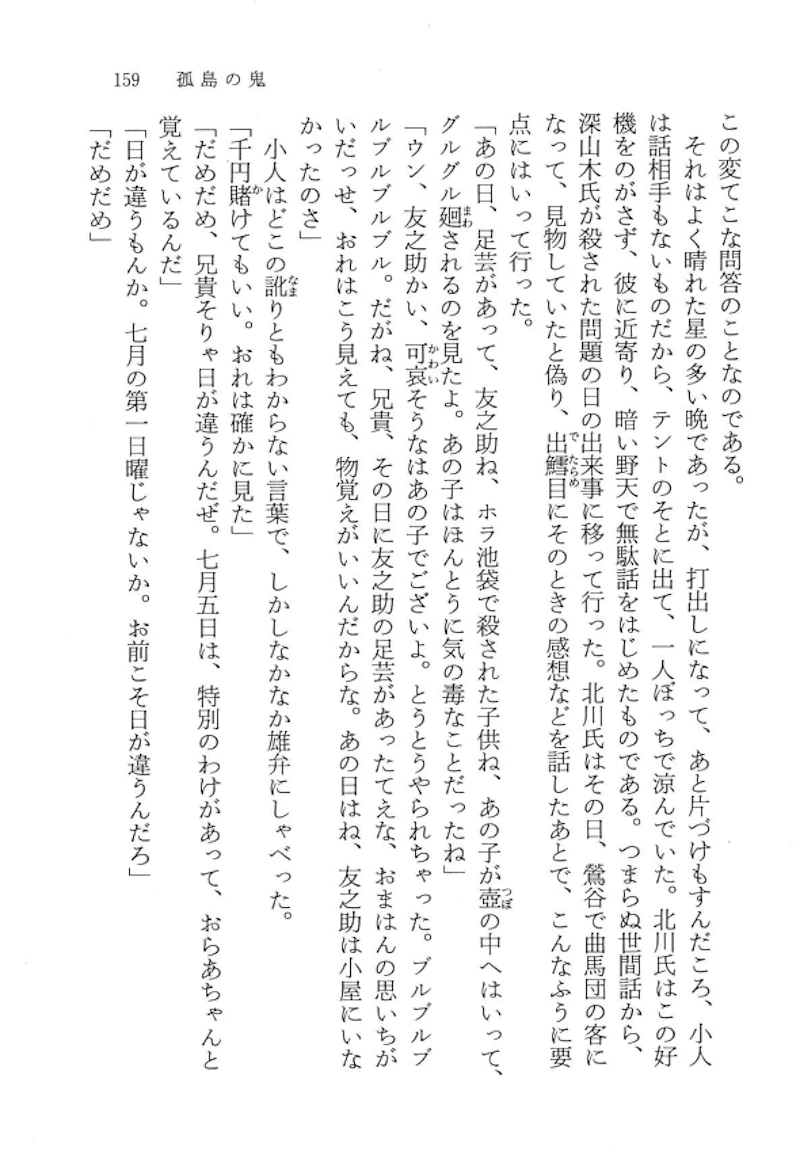 159　孤島の鬼
この変てこな問答のことなのである。
　それはよく晴れた星の多い晩であったが、打出しになって、あと片づけもすんだころ、小人
は話相手もないものだから、テントのそとに出て、一人ぼっちで涼んでいた。北川氏はこの好
機をのがさず、彼に近寄り、暗い野天で無駄話をはじめたものである。つまらぬ世間話から、
深山木氏が殺された問題の日の出来事に移って行った。北川氏はその日、鶯谷で曲馬団の客に
なって、見物していたと偽り、出鱈目にそのときの感想などを話したあとで、こんなふうに要
点にはいって行った。
「あの日、足芸があって、友之助ね、ホラ池袋で殺された子供ね、あの子が壺の中へはいって、
グルグル廻されるのを見たよ。あの子はほんとうに気の毒なことだったね」
「ウン、友之助かい、可哀そうなはあの子でございよ。とうとうやられちゃった。ブルブルブ
ルブルブルブル。だがね、兄貴、その日に友之助の足芸があったてえな、おまはんの思いちが
いだっせ、おれはこう見えても、物覚えがいいんだからな。あの日はね、友之助は小屋にいな
かったのさ」
　小人はどこの訛りともわからない言葉で、しかしなかなか雄弁にしゃべった。
「千円賭けてもいい。おれは確かに見た」
「だめだめ、兄貴そりゃ日が違うんだぜ。七月五日は、特別のわけがあって、おらあちゃんと
覚えているんだ」
「日が違うもんか。七月の第一日曜じゃないか。お前こそ日が違うんだろ」
「だめだめ」